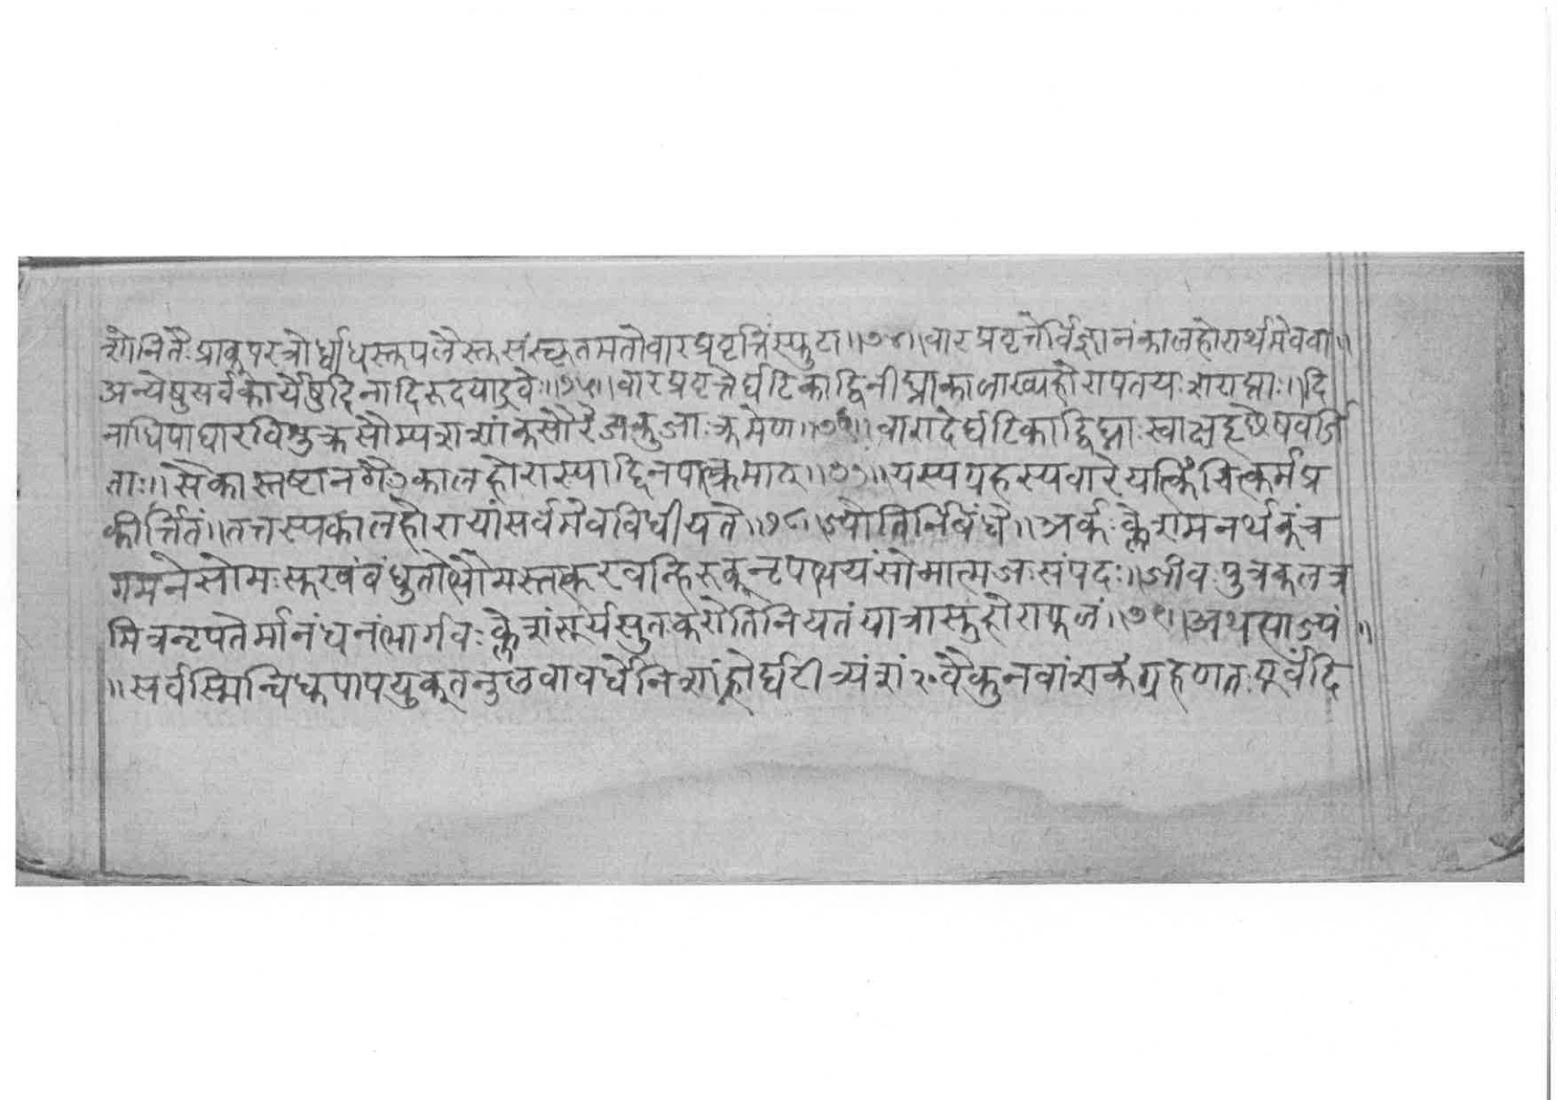 शोनितैः प्राक्परत्रोर्ध्वाधस्तत्पलैस्तसंस्कृतमतोवारप्रवृत्तिंस्फुटा ॥७४॥ वारप्रवृत्तेर्विज्ञानंकालहोरार्थमेववा ॥
अन्येषुसर्वकार्येषुदिनादिरूदयाद्रवेः ॥७५॥ वारप्रवृत्तेर्घटिकाद्विनीघ्नाकालाख्यहोरापतयःशराघ्नाः ॥ दि
नाधिपाद्यारविशुक्रसौम्यशशांकसौरे क्रमेण ॥ वारादेर्घटिकाद्विघ्नाःस्वाक्षहृछेषवर्जि
ताः ॥ सैकास्तष्टानगैःकालहोरास्यादिनपात्क्रमात् ॥७७॥ यस्यग्रहस्यवारेयत्किंचित्कर्मप्र
कीर्त्तितं ॥ तत्तस्यकालहोरायांसर्वमेवविधीयते ॥७८॥ ज्योतिर्निबंधे ॥ अर्कःक्लेशमनर्थकंच
गमनेसोमःसुखंबंधुतोभौमस्तस्करवन्हिरुक्नृपभयंसोमात्मजःसंपदः ॥ जीवःपुत्रकलत्र
मित्रनृपतेर्मानंधनंभार्गवःक्लेशंसूर्यसुतःकरोतिनियतंयात्रासुहोराफलं ॥७९॥ अथत्याज्यं ॥
॥ सर्वस्मिन्विधुपापयुक्तनुलवावर्धेनिशांह्नोर्घटीत्र्यंशंवैकुनवांशकंग्रहणतःपूर्वंदि